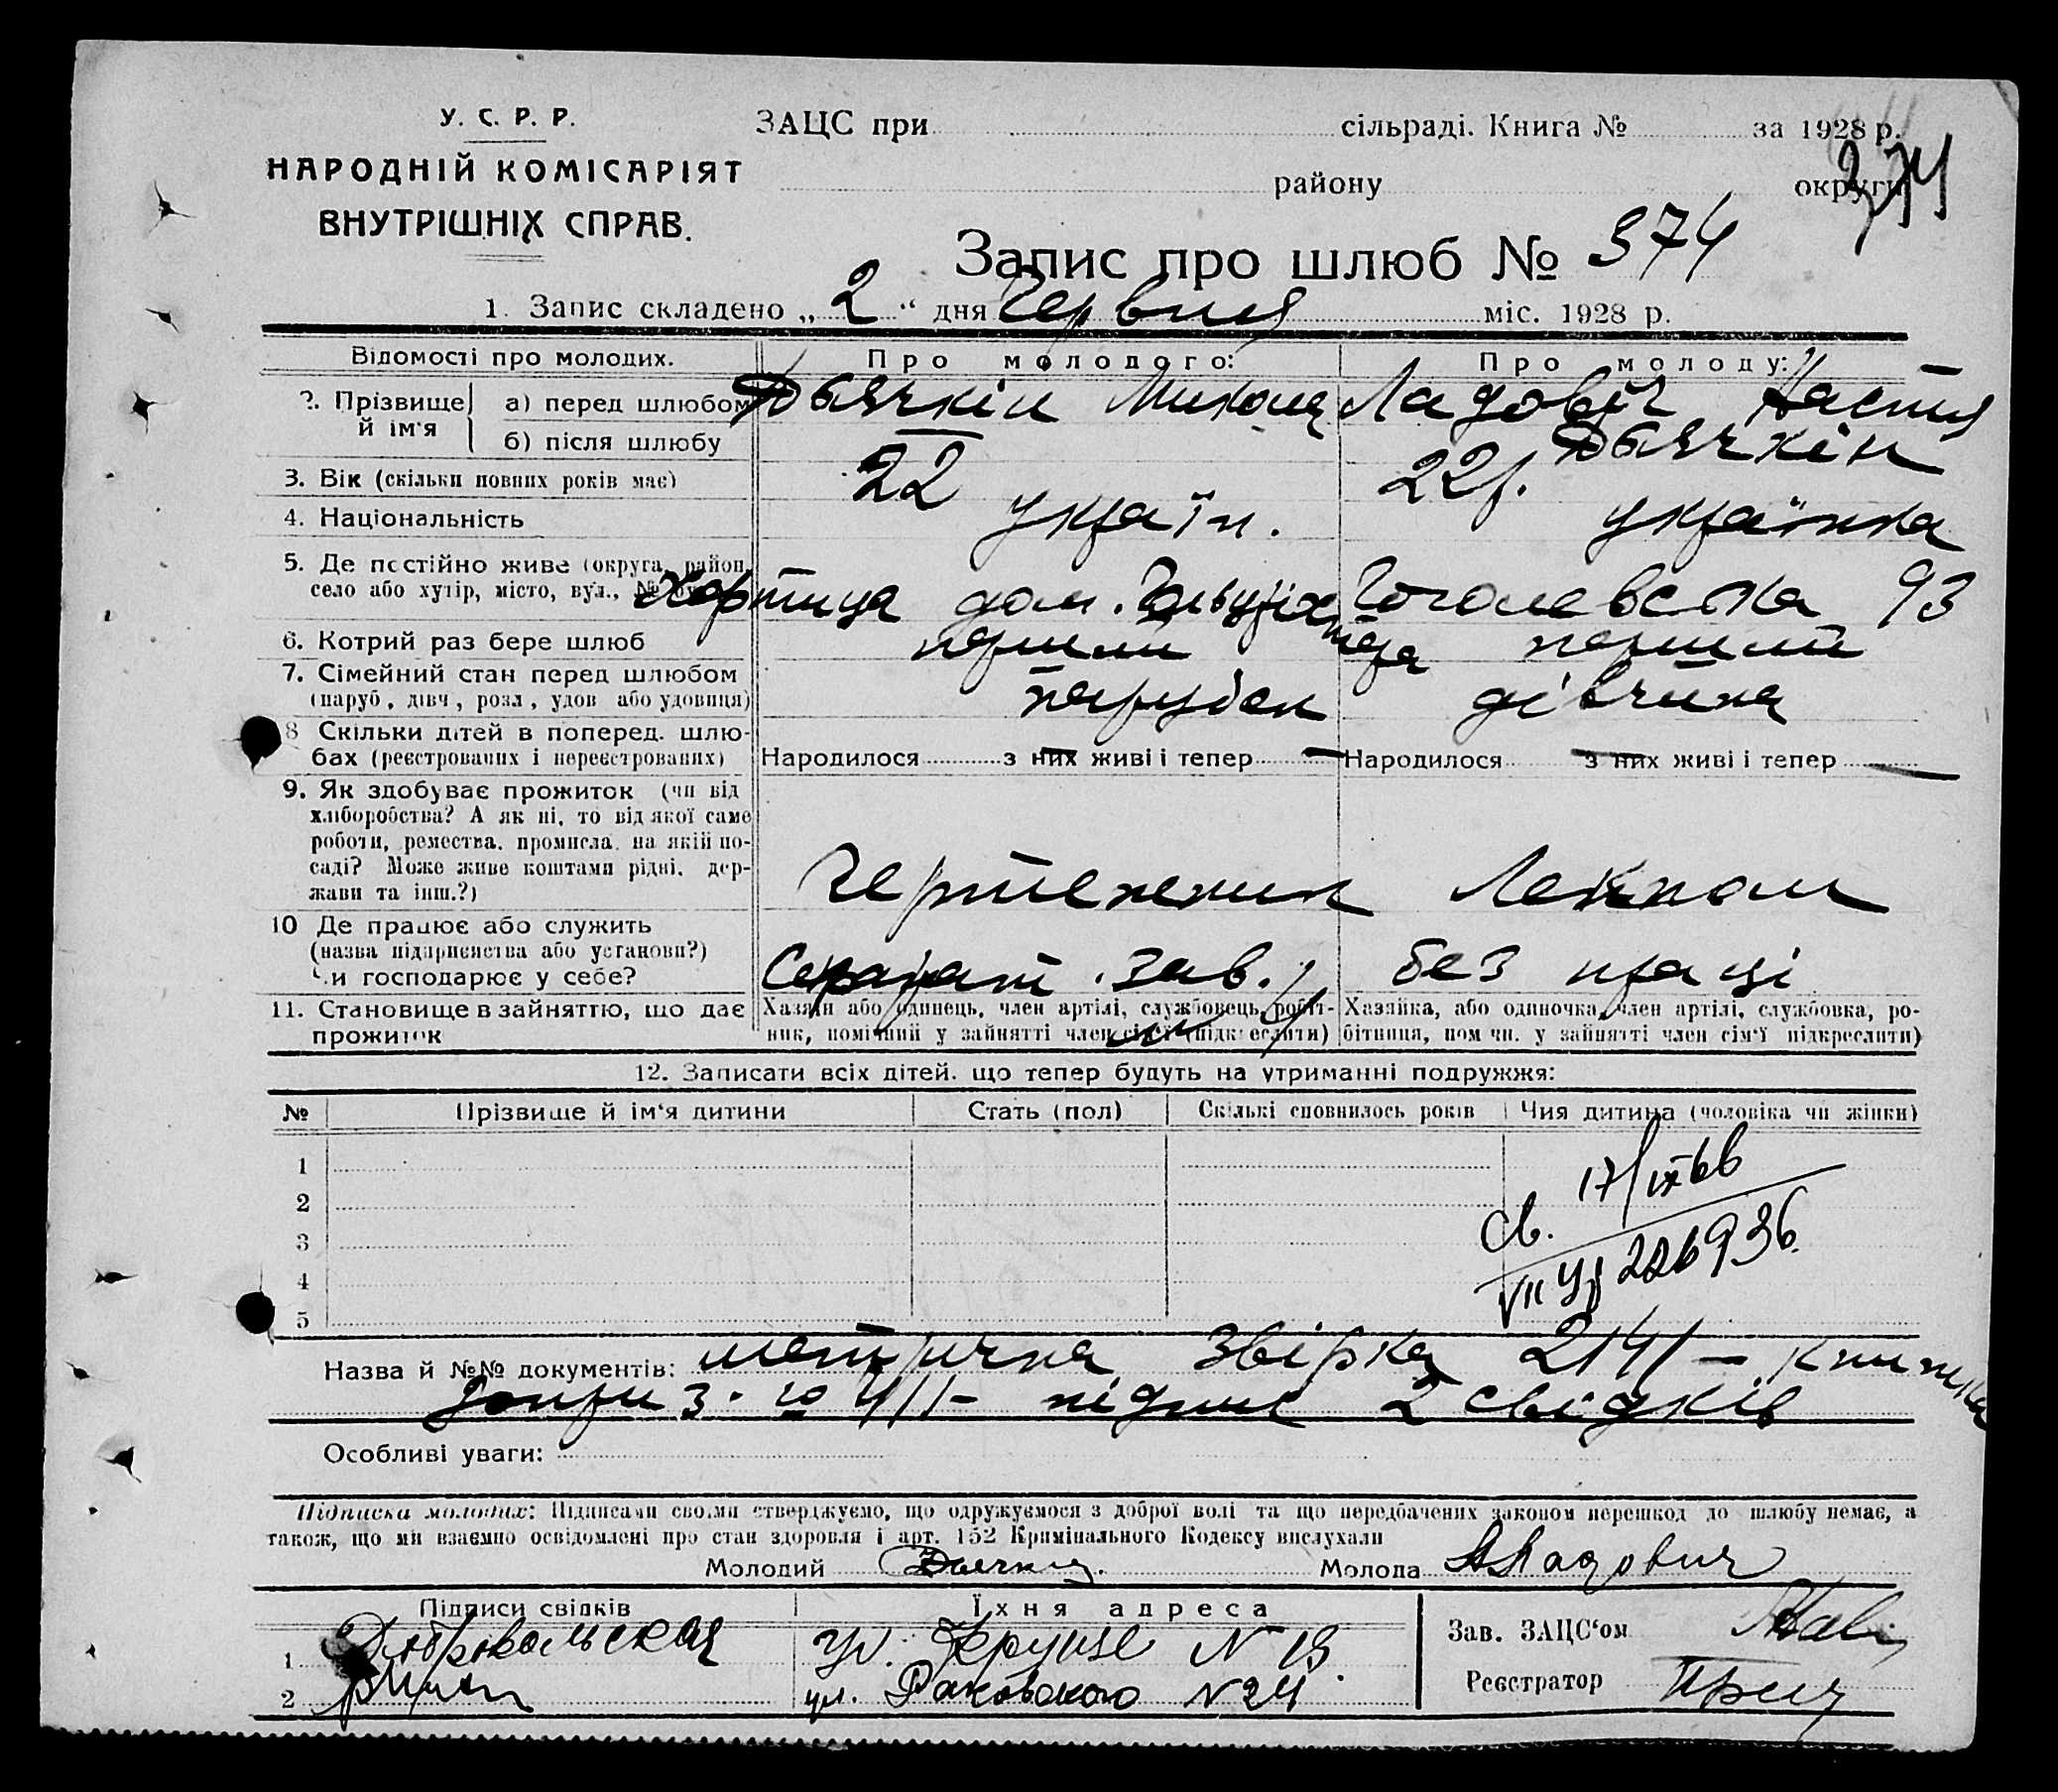 У. С. Р. Р.
НАРОДНІЙ КОМІСАРІЯТ
ВНУТРІШНІХ СПРАВ.
ЗАЦС при сільраді. Книга № за 1928 р.
району округи
274
Запис про шлюб № 374
1. Запис складено „ 2 “ дня Червня міс. 1928 р.
Відомості про молодих. Про молодого: Про молоду:
2. Прізвище й ім'я а) перед шлюбом Дьячкін Микола Ладовіч Настя
б) після шлюбу Дьячкін
3. Вік (скільки повних років має) 22 22 р.
4. Національність україн. українка
5. Де постійно живе (округа, район,
село або хутір, місто, вул., № Хортица дом. Гоголевська 93
6. Котрий раз бере шлюб перший перший
7. Сімейний стан перед шлюбом
(паруб, дівч, розл, удов або удовиця) парубок дівчина
8 Скільки дітей в поперед. шлю-
бах (реєстрованих і нереєстрованих) Народилося з них живі і тепер — Народилося з них живі і тепер —
9. Як здобуває прожиток (чи від
хліборобства? А як ні, то від якої саме
роботи, ремества, промисла, на якій по-
саді? Може живе коштами рідні, дер-
жави та інш.?) Чертежник Лекпом
10 Де працює або служить
(назва підприємства або установи?)
Чи господарює у себе? зав. без праці
11. Становище в зайняттю, що дає
прожиток
Хазяїн або одинець, член артілі, службовець, робіт-
ник, помічний у зайнятті член сім'ї (підкреслити)
Хазяйка, або одиночка, член артілі, службовка, ро-
бітниця, пом чн. у зайнятті член сім'ї підкреслити)
12. Записати всіх дітей, що тепер будуть на утриманні подружжя:
№ Прізвище й ім'я дитини Стать (пол) Скількі сповнилось років Чия дитина (чоловіка чи жінки)
1
2
3
4
5
17/IX 66
Св.
VII 226936.
Назва й №№ документів: метрична звірка 2141 — книжка
підпис 2 свідків
Особливі уваги:
Підписка молодих: Підписами своїми стверджуємо, що одружуємося з доброї волі та що передбачених законом перешкод до шлюбу немає, а
також, що ми взаємно освідомлені про стан здоровля і арт. 152 Кримінального Кодексу вислухали
Молодий Дьячкин. Молода АЛадович
Підписи свідків Їхня адреса
1 Добровольская ул. Фрунзе N 13
2 ул. Раковского N 24
Зав. ЗАЦС'ом
Реєстратор